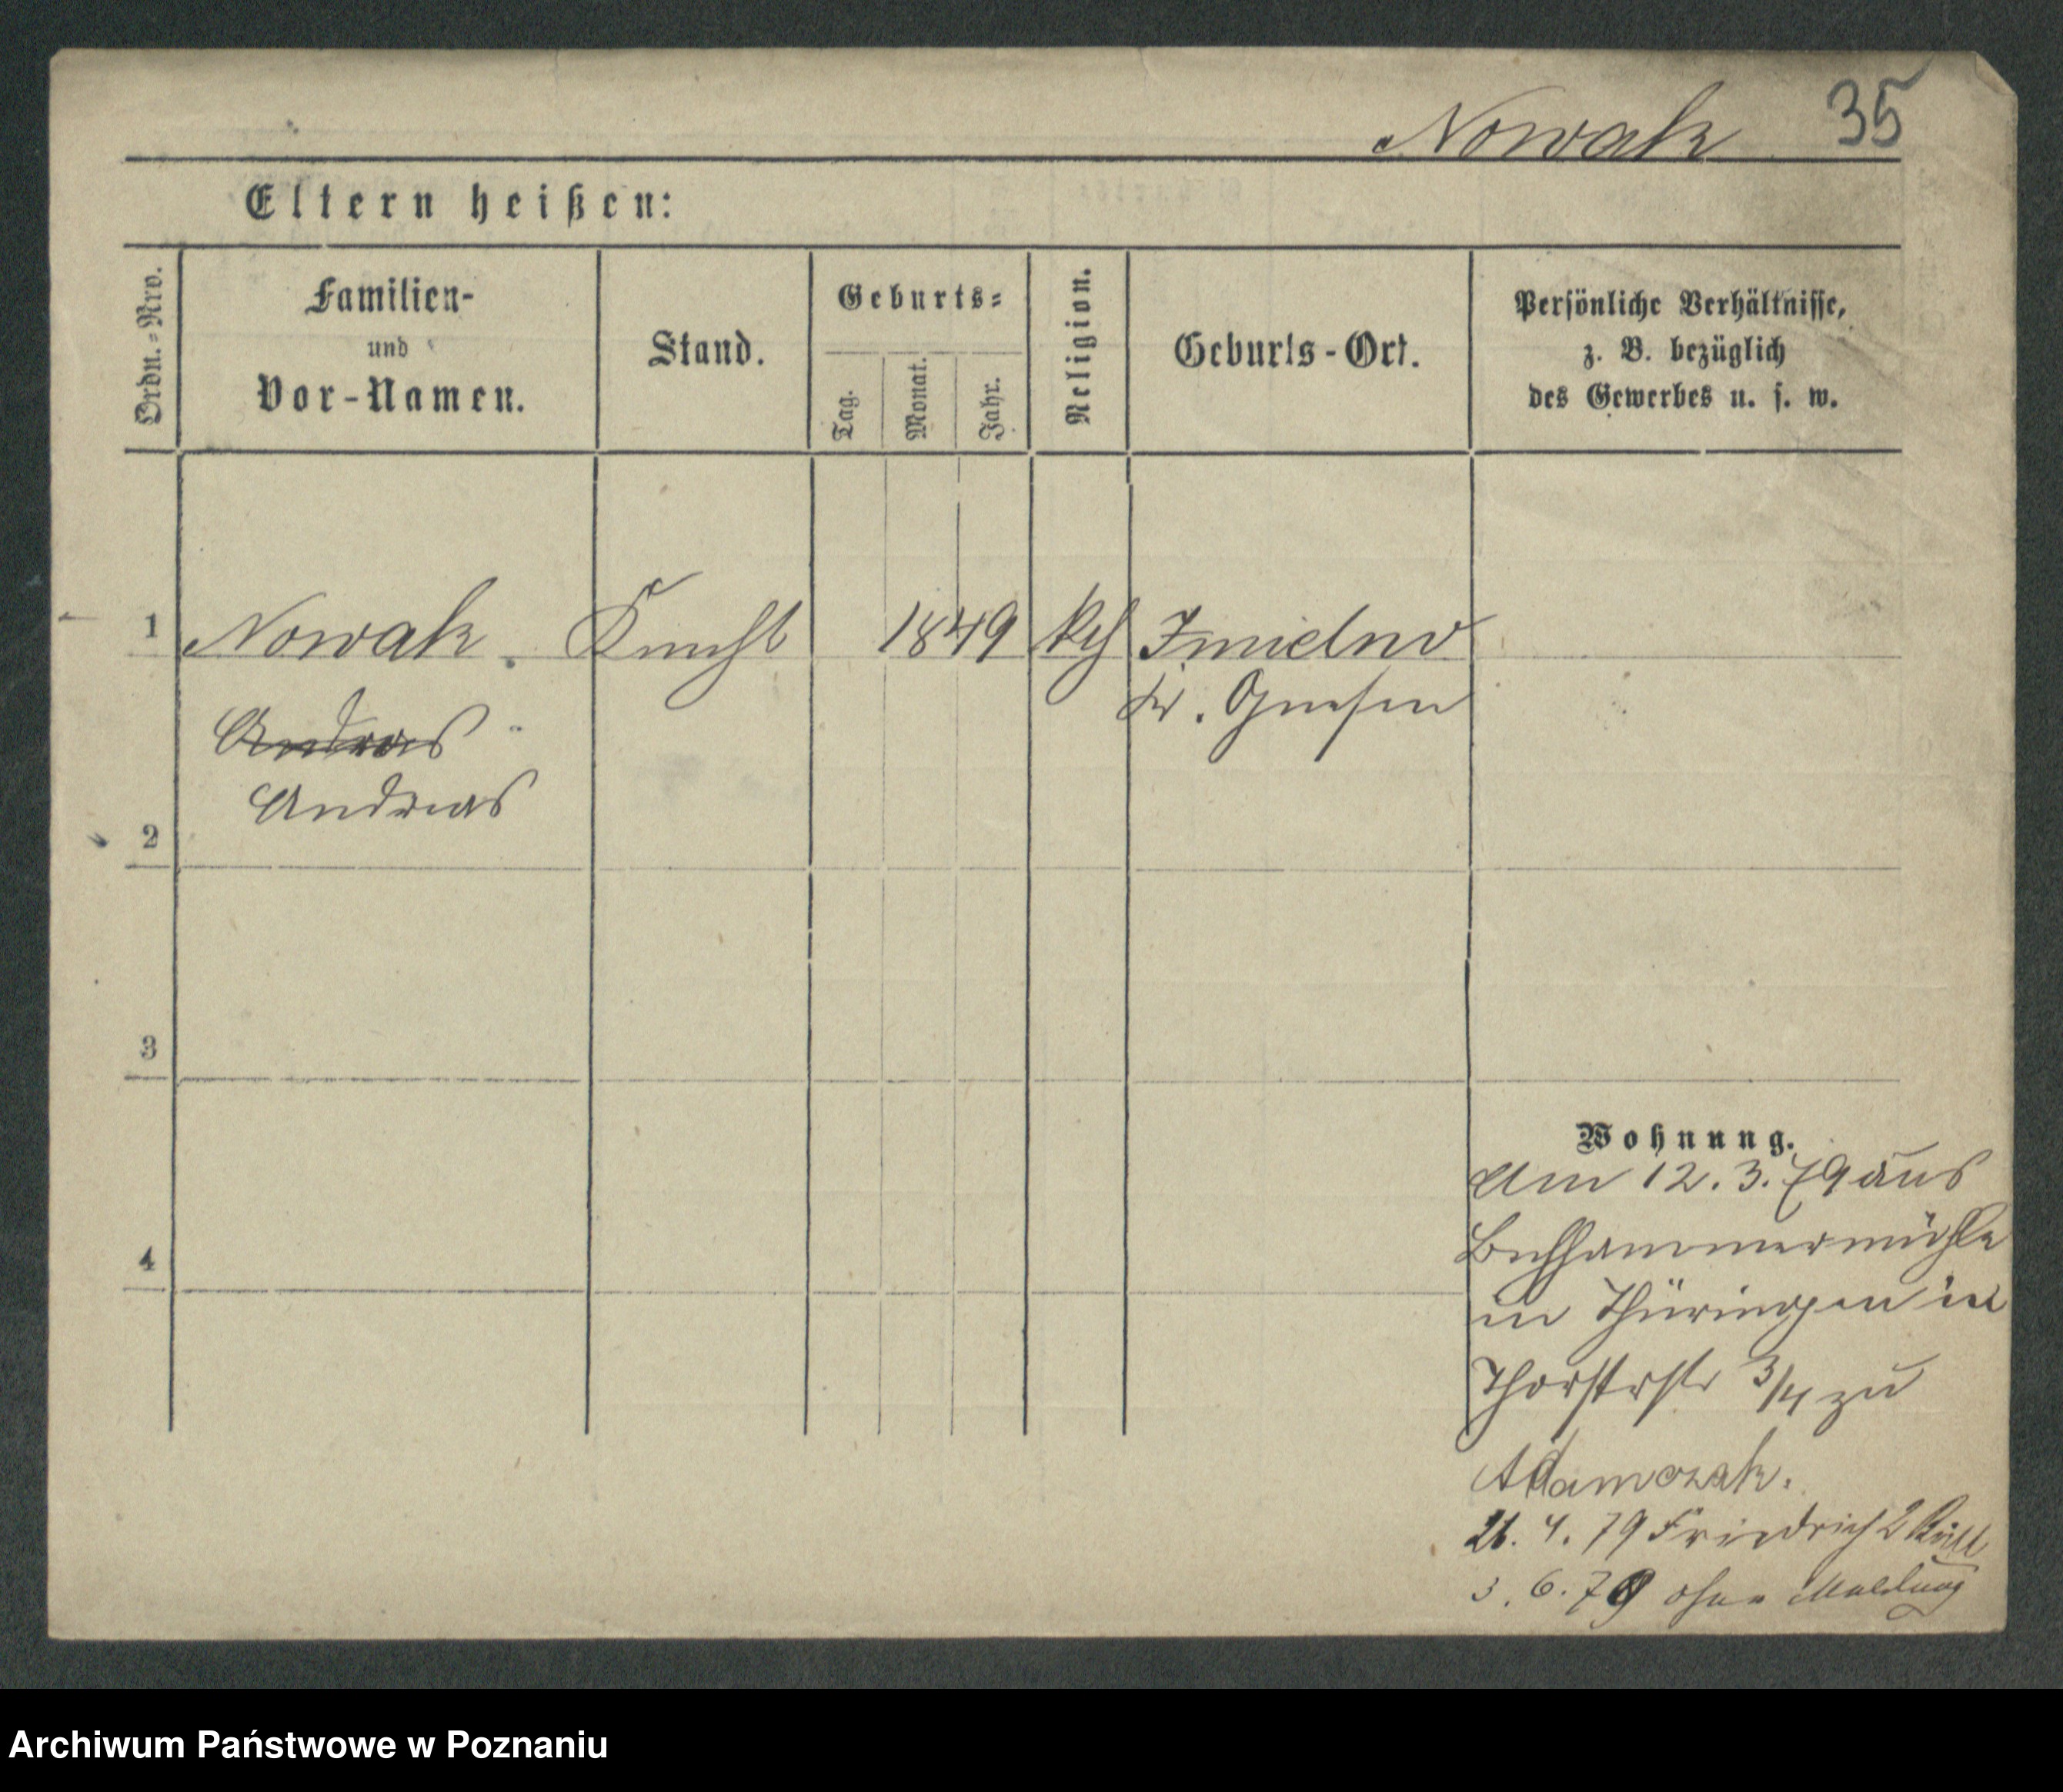 Nowak 35
Eltern heißen:
Ordn.-Nro.
Familien-
und
Vor-Namen.
Stand.
Geburts-
Tag.
Monat.
Jahr.
Religion.
Geburts-Ort.
Persönliche Verhältnisse,
z. B. bezüglich
des Gewerbes u. s. w.
1 Nowak Knecht 1849 kth Imielno
Kr. Gnesen
Andras
Andreas
2
3
4
Wohnung.
Am 12. 3. 79 aus
in Thüringen in
Thorstrstr 3/4 zu
Adamczak.
21. 4. 79 Friedrich 2
3. 6. 79 ohne Meldung
Archiwum Państwowe w Poznaniu